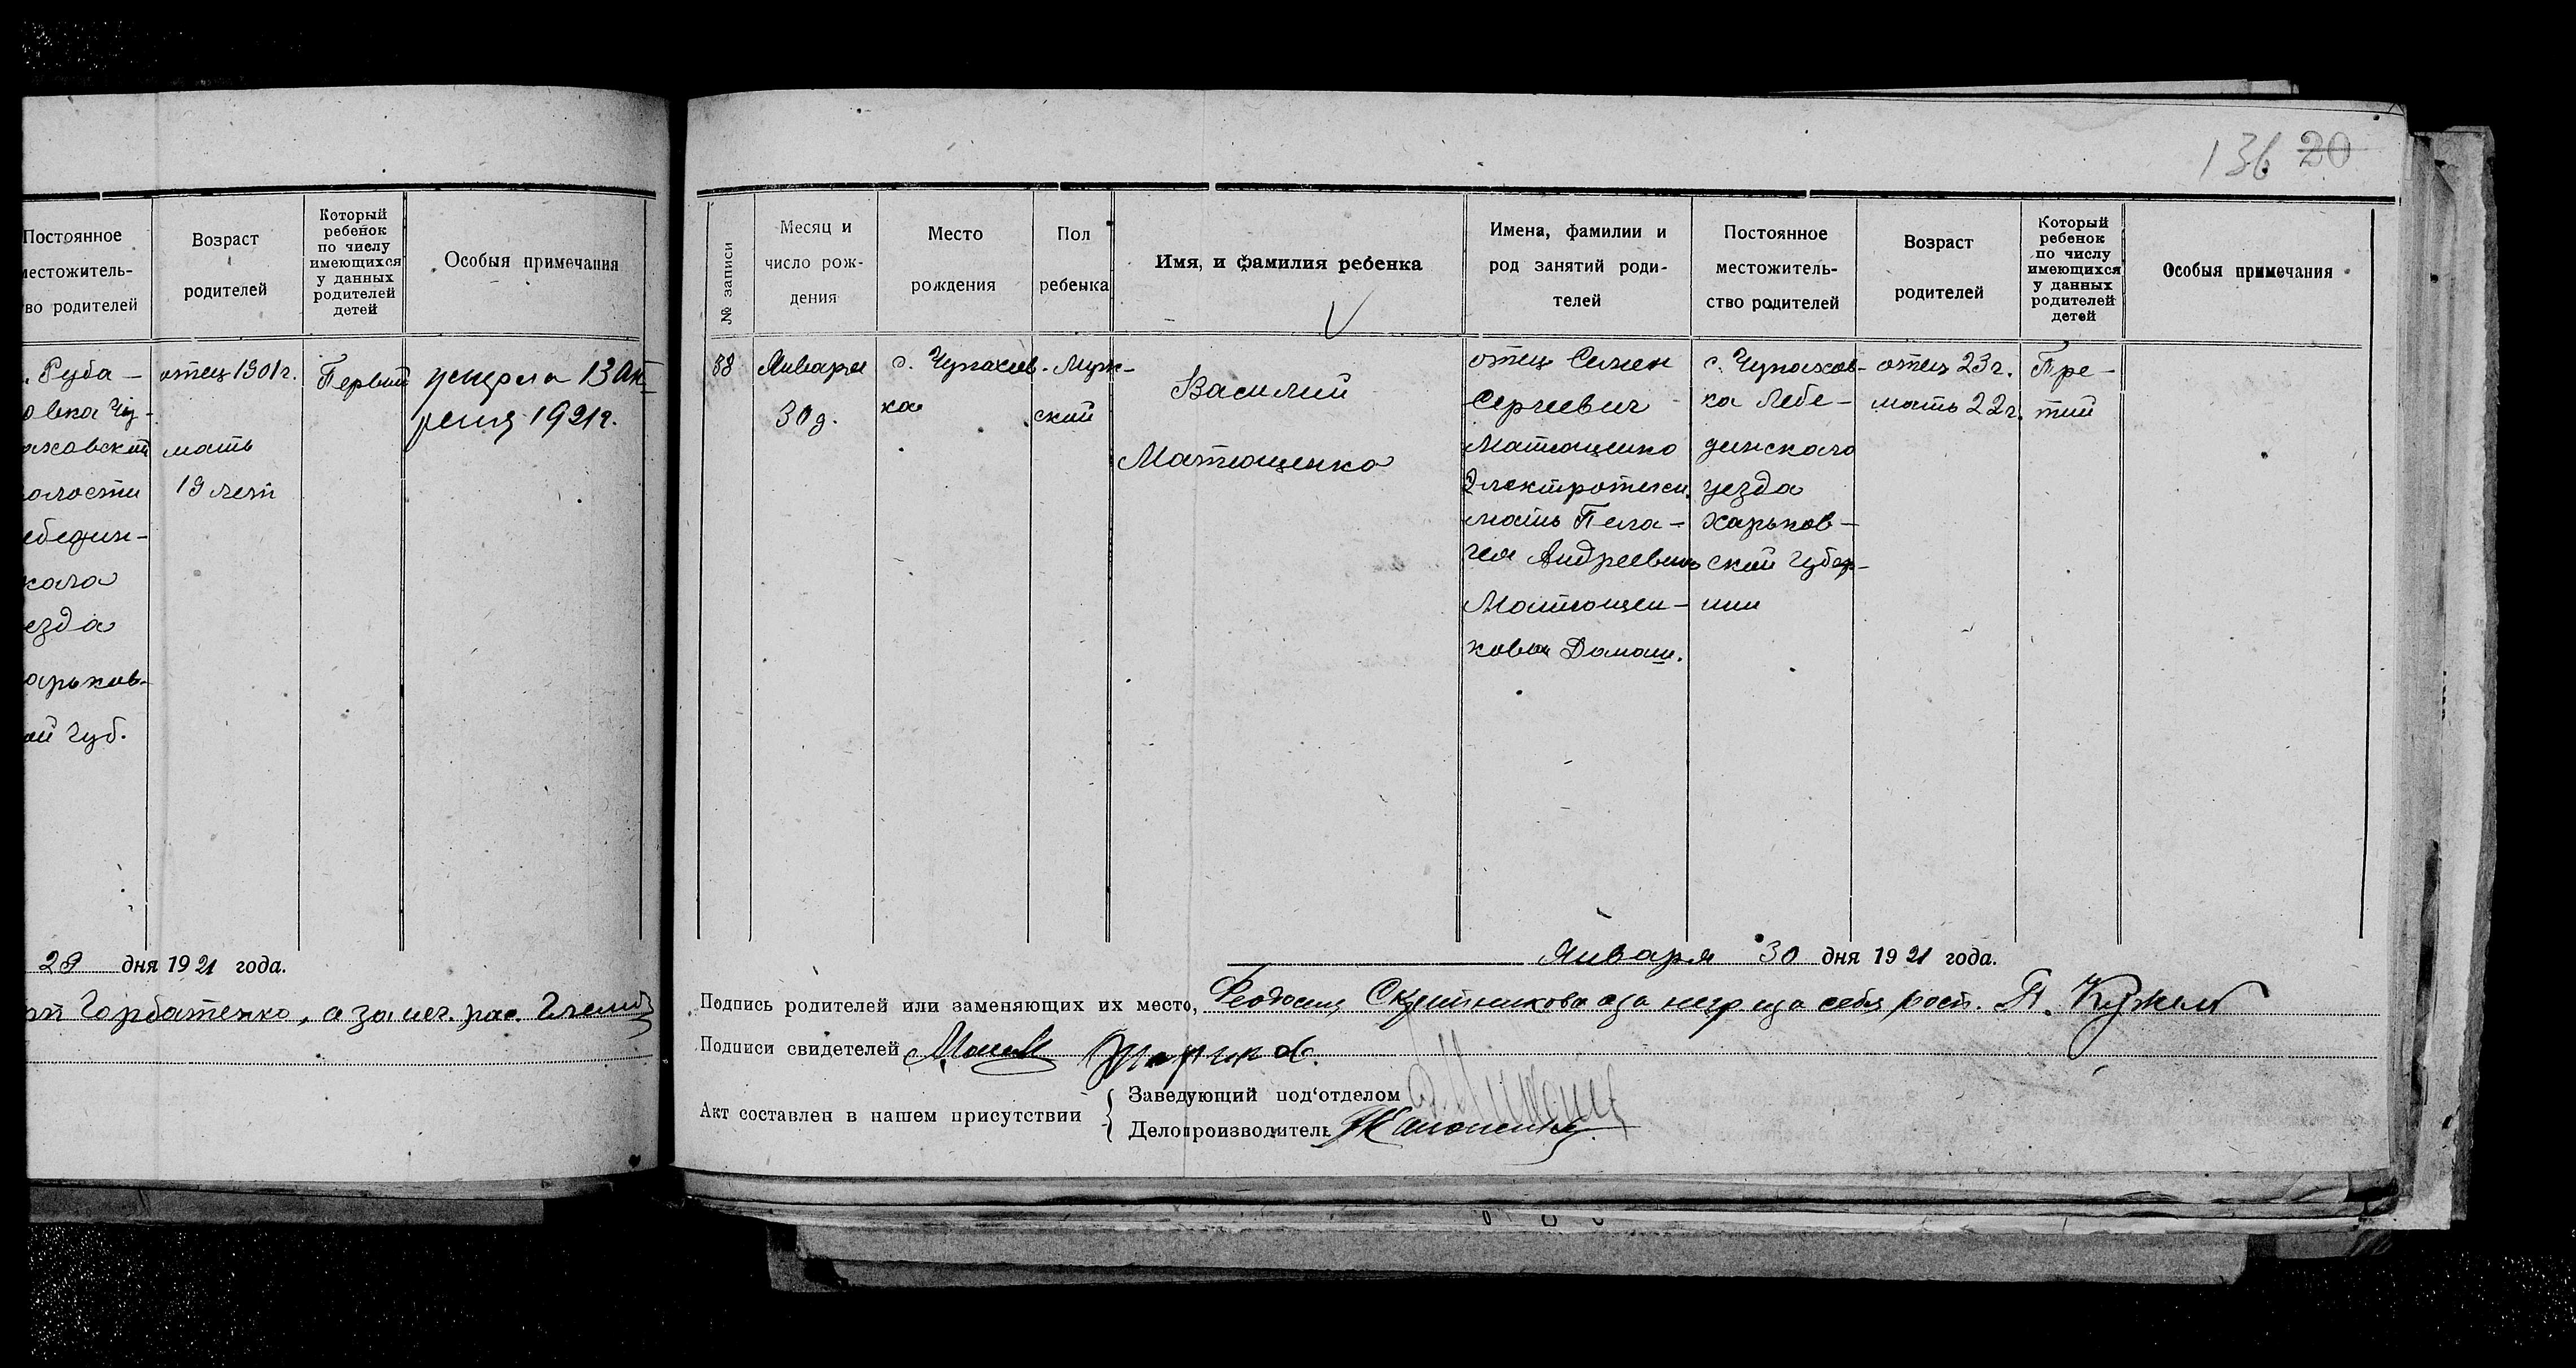 Постоянное
местожитель-
во родителей
Возраст
родителей
Который
ребенок
по числу
имеющихся
у данных
родителей
детей
Особыя примечания
Руба-
овка Чу-
аховский
олости
ебедин-
кого
езда
арьков-
ой Губ.
отец 1901 г.
мать
19 лет
Первый
умерла 13 Ап
реля 1921 г.
29 дня 1921 года.
Горбатенко, а за нег. рас.
136 20
№ записи
Месяц и
число рож-
дения
Место
рождения
Пол
ребенка
Имя, и фамилия ребенка
Имена, фамилии и
род занятий роди-
телей
Постоянное
местожитель-
ство родителей
Возраст
родителей
Который
ребенок
по числу
имеющихся
у данных
родителей
детей
Особыя примечания
38
Января
30 д.
с. Чупахов-
ка
Муж-
ской
Василий
Матющенко
отец Семен
Сергеевич
Матющенко
Электротехн.
мать Пела-
гея Андреевна
Матющен-
кова Домаш.
с. Чупахов-
ка Лебе-
динского
уезда
Харьков-
ской Губер-
нии
отец 23 г.
мать 22 г.
Тре-
тий
Января 30 дня 1921 года.
Подпись родителей или заменяющих их место, Феодосия за негр за себя расп. П.
Подписи свидетелей
Акт составлен в нашем присутствии
Заведующий под'отделом
Делопроизводитель